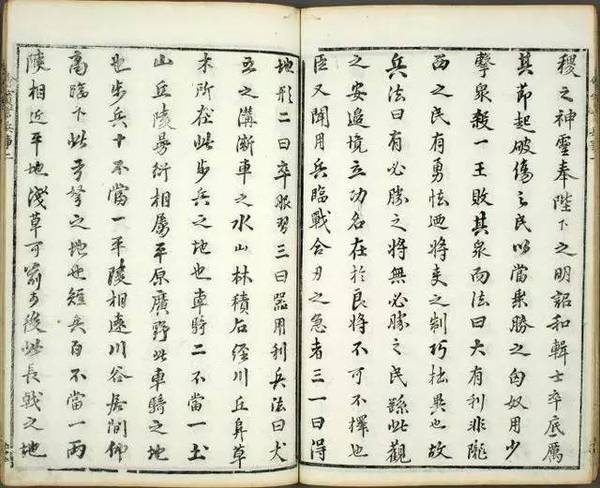 稷之神靈奉陛下之明詔和輯士卒底厲
其節起破傷之民以當乘勝之匈奴用少
擊衆殺一王敗其衆而法曰大有利非隴
西之民有勇怯迺將吏之制巧拙異也故
兵法曰有必勝之將無必勝之民繇此觀
之安邊境立功名在於良將不可不擇也
臣又聞用兵臨戰合刃之急者三一曰得
地形二曰卒服習三曰器用利兵法曰丈
五之溝漸車之水山林積石經川丘阜草
木所在此步兵之地也車騎二不當一土
山丘陵曼衍相屬平原廣野此車騎之地
也步兵十不當一平陵相遠川谷居間仰
高臨下此弓弩之地也短兵百不當一兩
陳相近平地淺草可前可後此長戟之地